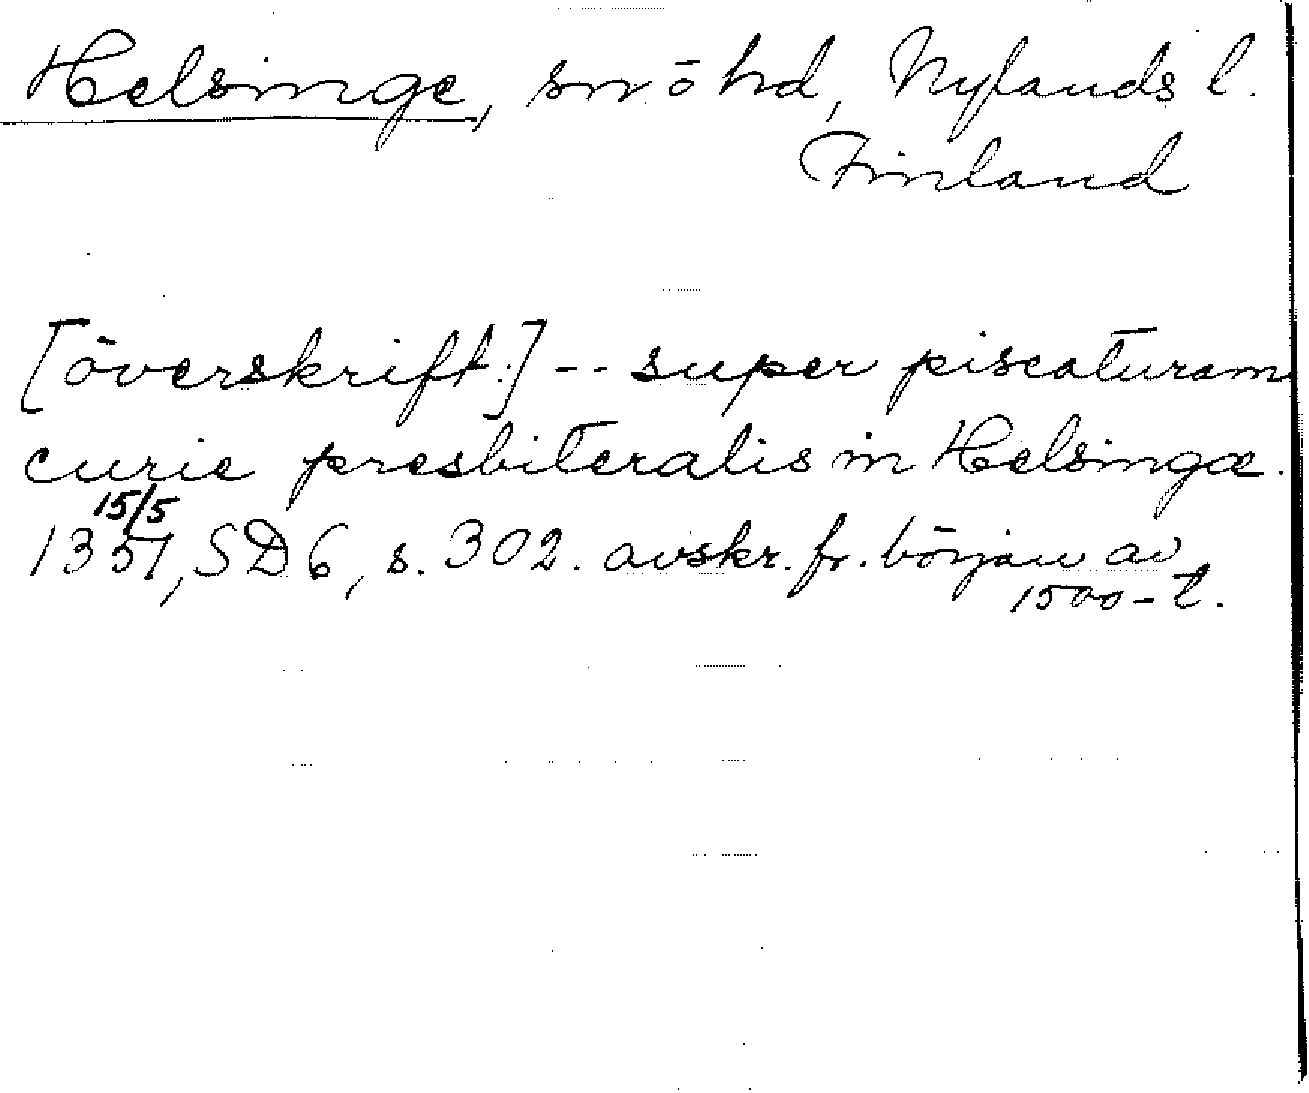 Helsinge, sn o hd, Nylands l.
Finland
[överskrift:] -- super piscaturam
curie presbiteralis in Helsingæ.
15/5
1351, SD 6, s. 302. avskr. fr. början av
1500-t.